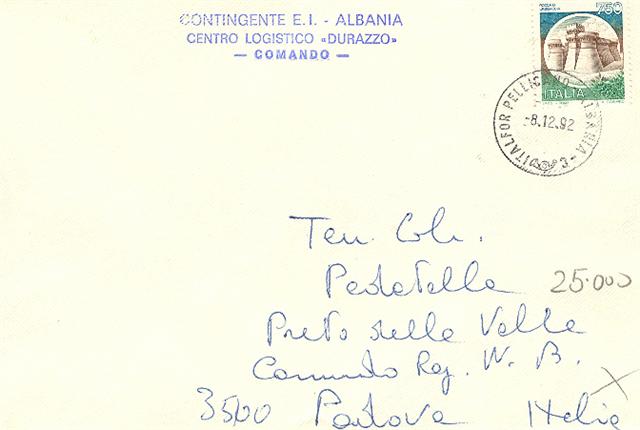 CONTINGENTE E.I. - ALBANIA
CENTRO LOGISTICO «DURAZZO»
— COMANDO —
750
ITALIA
ITALFOR PELLICANO ALBANIA - 3 -
-8.12.92
Ten. Col.
Pedatella
25.000
Prato della Valle
Comando Reg. N.
3500 Padova Italia